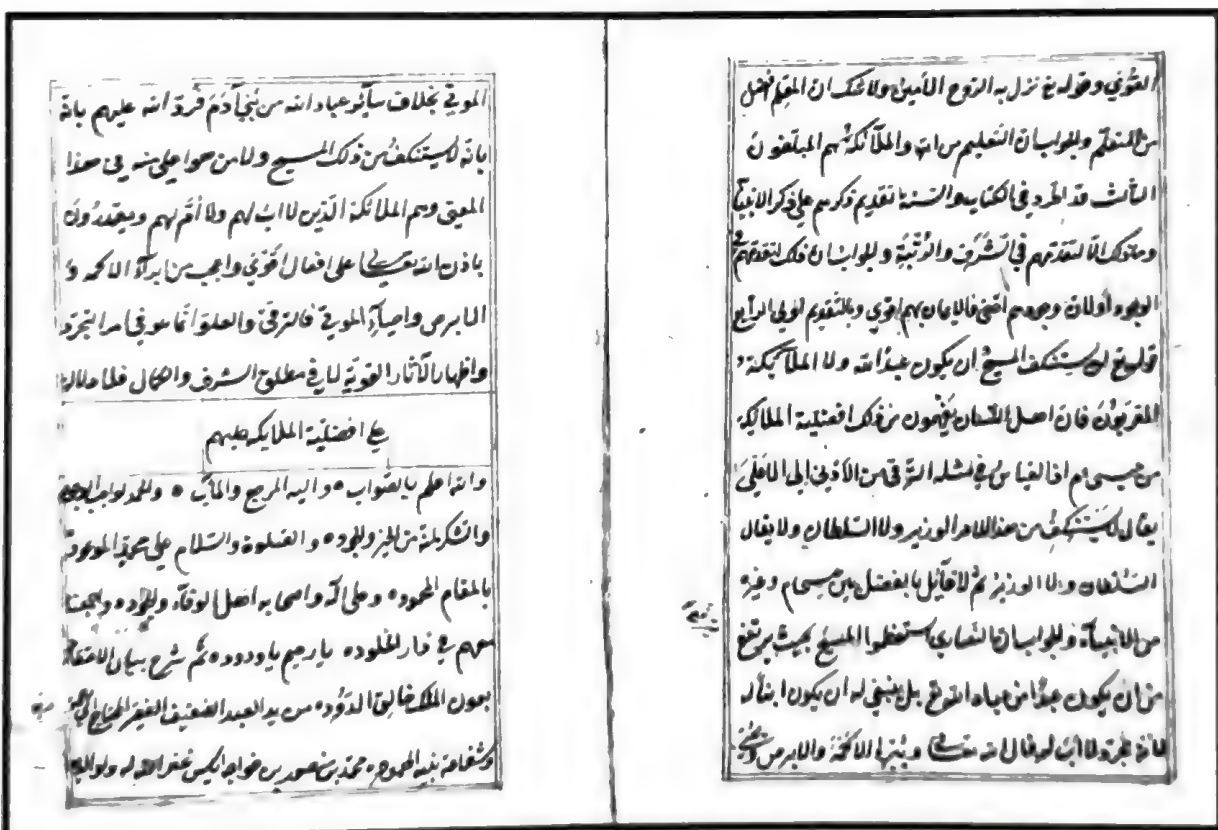 القوي وقوله تع نزل به الروح الأمين ولا شك ان المعلم افضل
من المتعلم والجواب ان التعليم من الله والملآئكة هم المبلغون
الثالث قد اطرد في الكتاب والسنة تقديم ذكرهم على ذكر الانبيآ
وما ذلك الا لتقدمهم في الشرف والرتبة والجواب ان ذلك لتقدمهم في
الوجود اولان وجودهم اخفى فالايمان بهم اقوي وبالتقديم اولى الرابع
قوله تع لن يستنكف المسيح ان يكون عبدا لله ولا الملآئكة
المقربون فان اهل اللسان يفهمون من ذلك افضلية الملائكة
من عيسى م اذ القياس في مثله الترقي من الأدنى الى الأعلى
يقال لا يستنكف من هذا الامر الوزير ولا السلطان ولا يقال
السلطان ولا الوزير ثم لا قآئل بالفضل بين عيسى م وغيره
من الانبيآء والجواب ان النصارى استعظموا المسيح بحيث يرتفع
من ان يكون عبدا من عباد الله تع بل ينبغي له ان يكون ابنا له
لانه مجرد لا اب له وقال الله تعالى ويبرئ الاكمه والابرص
الموتى بخلاف سآئر عباد الله من بني آدم فرد الله عليهم بانه
بانه لا يستنكف من ذلك المسيح ولا من هو اعلى منه في هذا
المعنى وهم الملائكة الذين لا اب لهم ولا ام لهم ويقدرون
باذن الله تعالى على افعال اقوي واعجب من ابرآء الاكمه و
الابرص واحيآء الموتى فالترقي والعلو انما هو في امر التجرد
واظهار الآثار القوية لا في مطلق الشرف والكمال فلا دلالة
على افضلية الملايكة عليهم
والله اعلم بالصواب واليه المرجع والمآب والحمد لواجب الوجود
والشكر لمنه من الخير والجود والصلوة والسلام على محمد الموعود
بالمقام المحمود وعلى آله واصحابه اهل الوفآء والجود
معهم في دار الخلود يا رحيم يا ودود تم شرح بيان الاعتقاد
بعون الملك خالق من يد العبد الضعيف الفقير المحتاج
وشفاعة نبيه محمد بن منصور بن خواجه غفر الله له ولوالديه